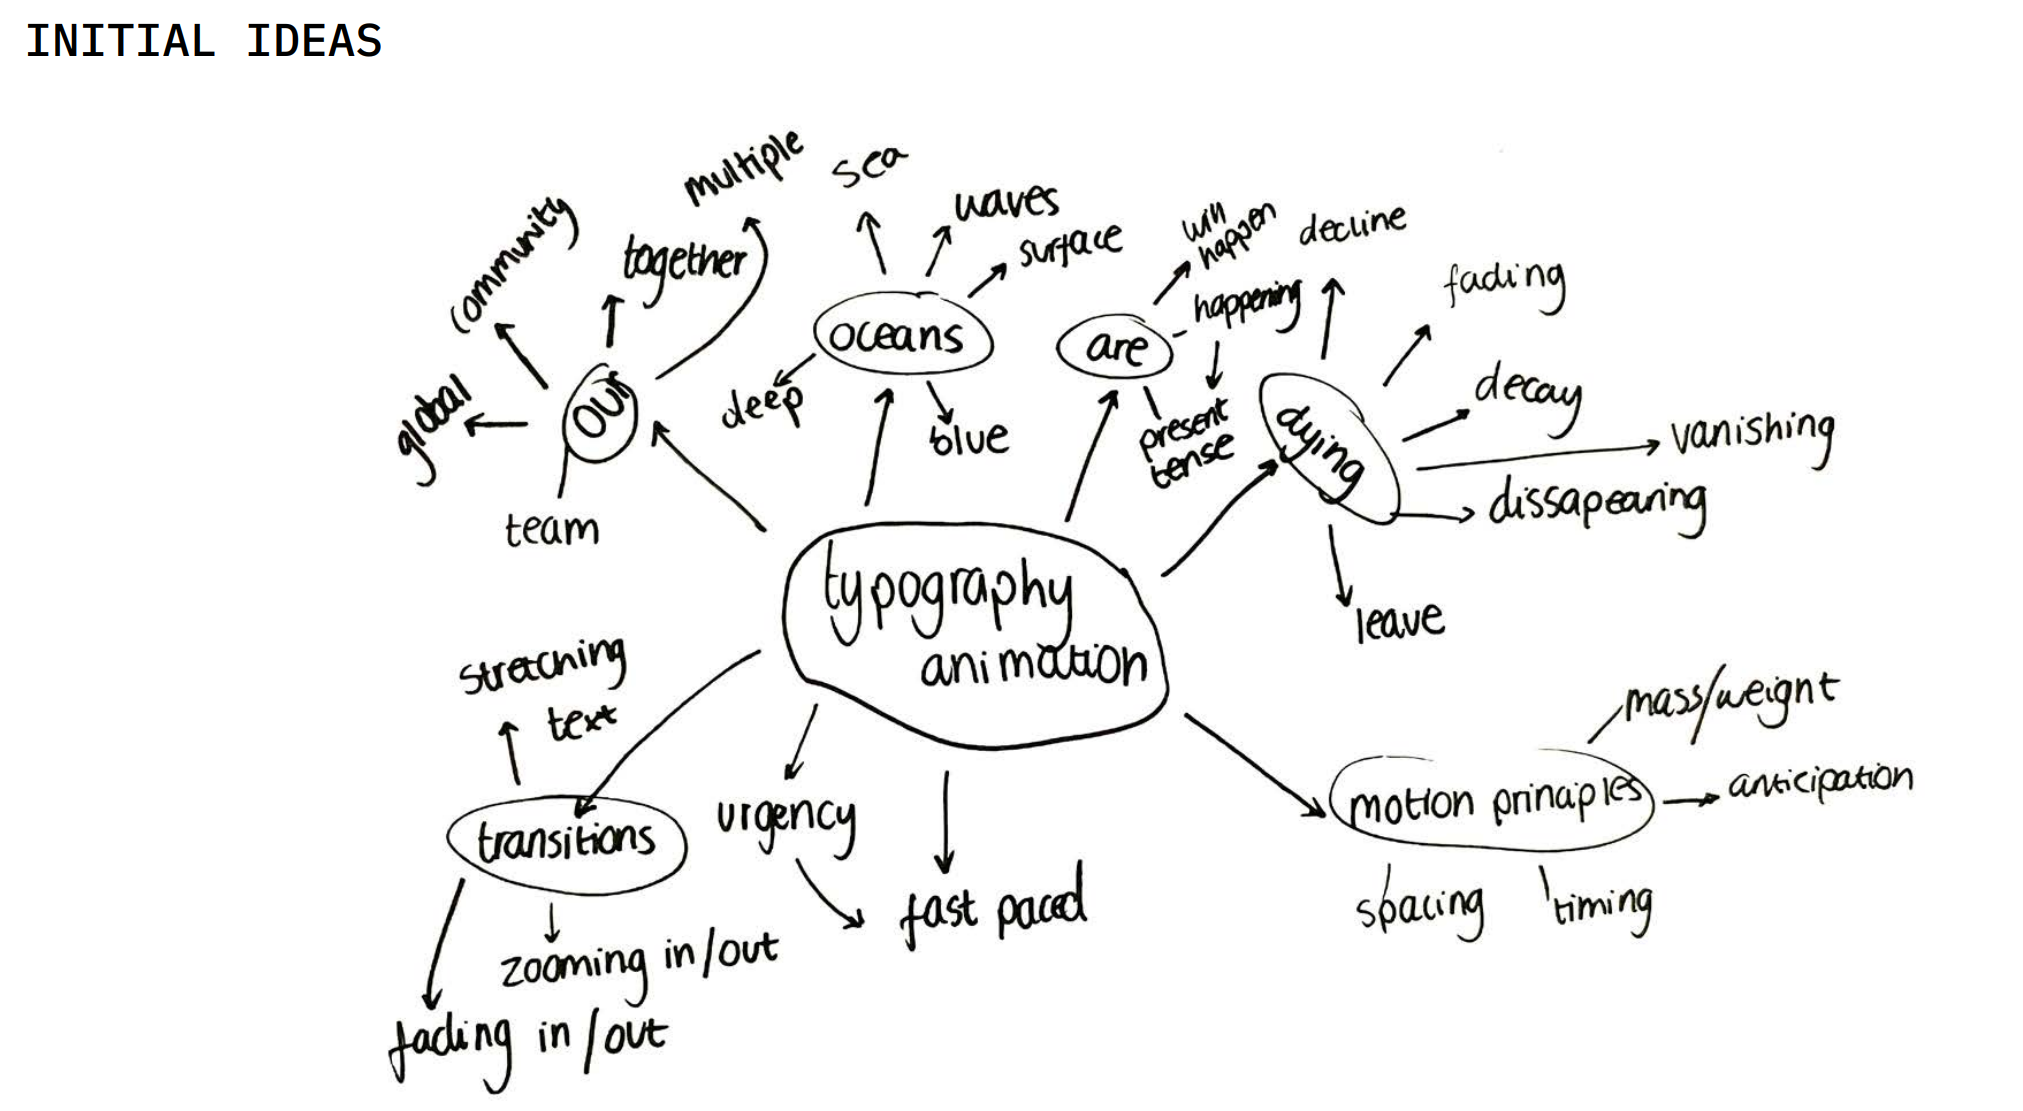 INITIAL IDEAS
multiple
sea
waves
surface
community
together
will
happen
decline
fading
happening
oceans
are
our
global
deep
blue
present
tense
dying
decay
vanishing
dissapearing
team
leave
typography
animation
stretching
text
mass/weight
anticipation
motion principles
transitions
urgency
fast paced
spacing
timing
zooming in/out
fading in/out